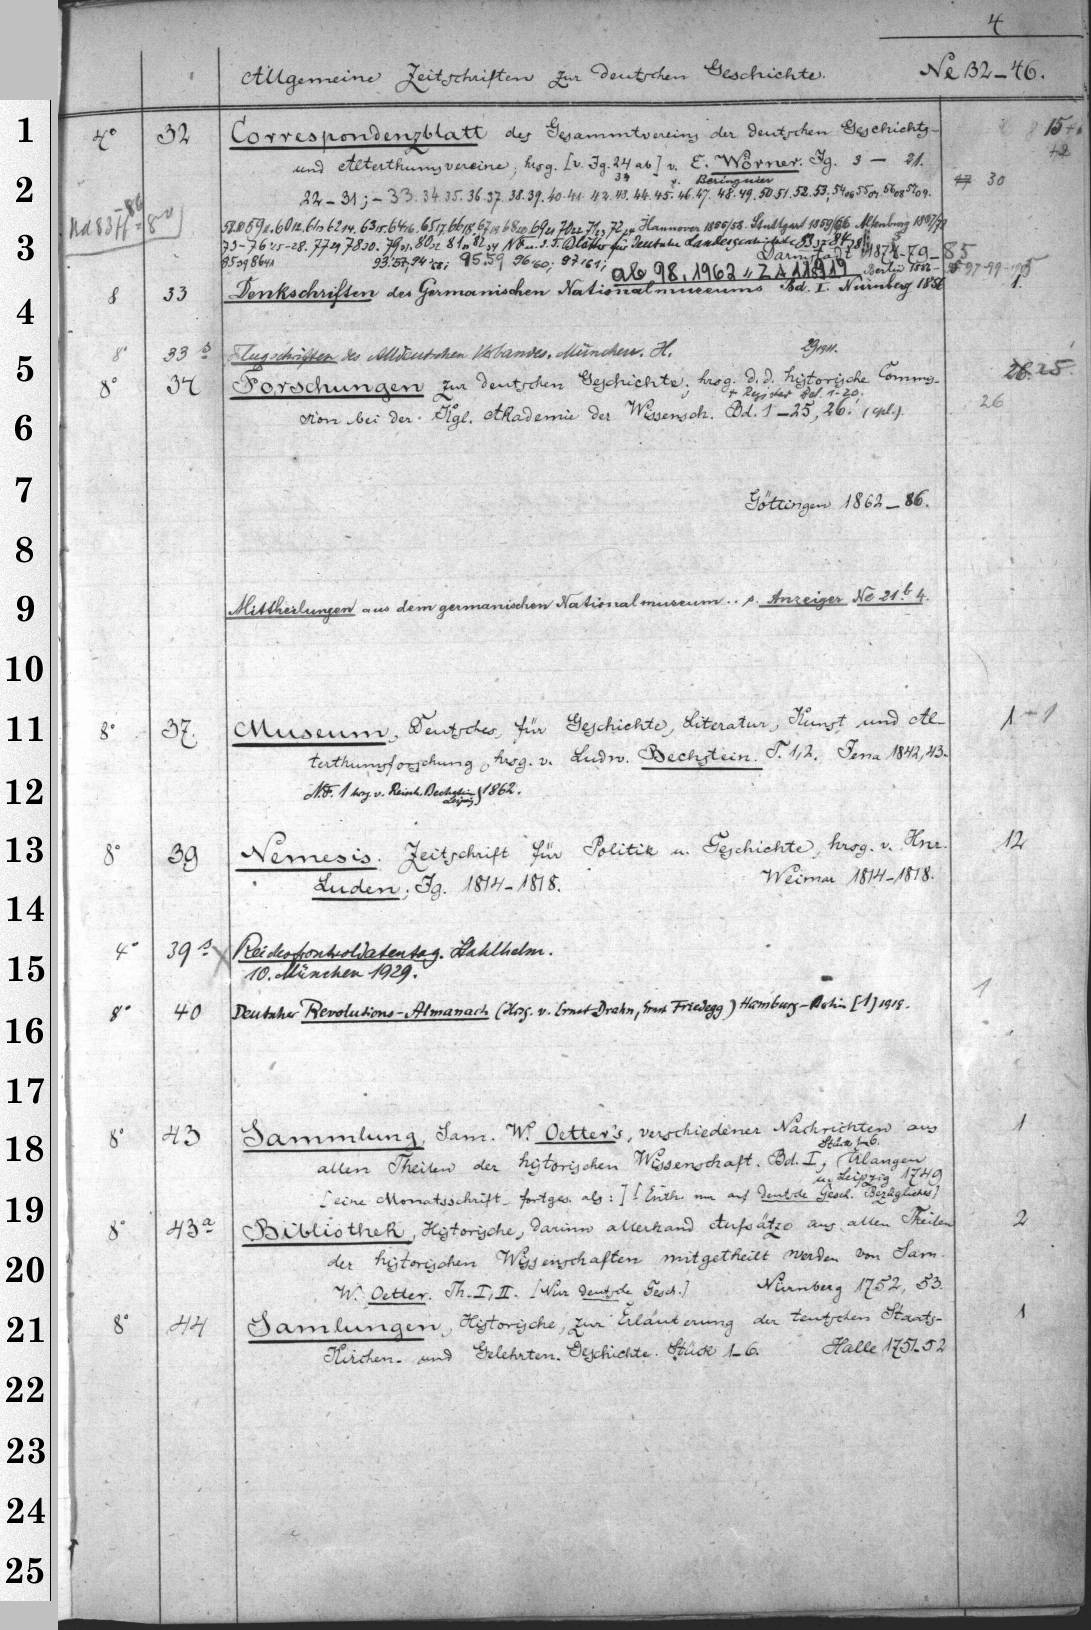 4
Allgemeine Zeitschriften zur deutschen Geschichte. Ne 32-46.
1
4° 32 Correspondenzblatt des Gesammtvereins der deutschen Geschichts-
und Alterthumsvereine, hrsg. [v. Jg. 24 ab] v. E. Wörner. Jg. 3 — 21.
2
v. Beringuier
22-31; -33. 34. 35. 36. 37. 38. 39. 40. 41. 42. 43. 44. 45. 46. 47. 48. 49. 50. 51. 52. 53, 30
3
Hannover 1858. Stuttgart Altenburg
Darmstadt 1878-79-85
ab 98, 1962 " ZA 11919 Berlin
8 33 Denkschriften des Germanischen Nationalmuseums Bd. I. Nürnberg 1856 1.
4
8° 33 s Flugschriften des Alldeutschen Verbandes. München. H. 29 1911.
5
8° 34 Forschungen zur deutschen Geschichte; hrsg. d. d. historische Commis- 25.
+ Register Bd. 1-20.
sion bei der Kgl. Akademie der Wissensch. Bd. 1-25, 26. (cpl.). 26
6
7
Göttingen 1862-86.
8
9
Mittheilungen aus dem germanischen Nationalmuseum .. s. Anzeiger Ne 21 b 4.
10
11
8° 37. Museum, Deutsches, für Geschichte, Literatur, Kunst und Al- 1-1
terthumsforschung, hrsg. v. Ludw. Bechstein. T. 1, 2. Jena 1842, 43.
12
N.F. 1 hrsg. v. Reinh. Bechstein Leipzig 1862.
13
8° 39 Nemesis. Zeitschrift für Politik u. Geschichte, hrsg. v. Hnr. 12
Luden, Jg. 1814-1818. Weimar 1814-1818.
14
4° 39 s Reichsfrontsoldatentag. Stahlhelm.
15
10. München 1929.
8° 40 Deutscher Revolutions-Almanach (Hrsg. v. Ernst Drahn, Ernst Friedegg) Hamburg-Berlin [1] 1919. 1
16
17
8° 43 Sammlung, Sam. W. Oetter's, verschiedener Nachrichten aus 1
18
Stück 1-6.
allen Theilen der historischen Wissenschaft. Bd. I, Erlangen
u. Leipzig 1749
19
[eine Monatsschrift - fortges. als:] [Enth. nur auf deutsche Gesch. Bezügliches]
8° 43 a Bibliothek, Historische, darinn allerhand Aufsätze aus allen Theilen 2
20
der historischen Wissenschaften mitgetheilt werden von Sam.
W. Oetter. Th. I, II. [Nur deutsche Gesch.] Nürnberg 1752, 53.
21
8° 44 Samlungen, Historische, zur Erläuterung der teutschen Staats- 1
Kirchen- und Gelehrten-Geschichte. Stück 1-6. Halle 1751-52
22
23
24
25